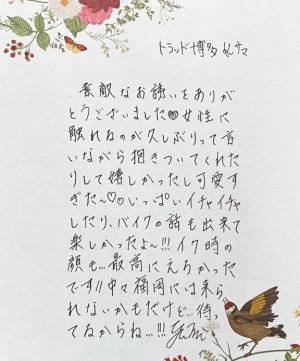 トラッド博多 Kサマ
素敵なお誘いをありが
とうございました♥女性に
触れるのが久しぶりって言
いながら抱きついてくれた
りして嬉しかったし可愛す
ぎた〜♡♡いっぱいイチャイチャ
したり、バイクの話も出来て
楽しかったよ〜!!!イク時の
顔も…最高にえろかった
です!!中々福岡には来ら
れないかもだけど…待っ
てるからね…!!!